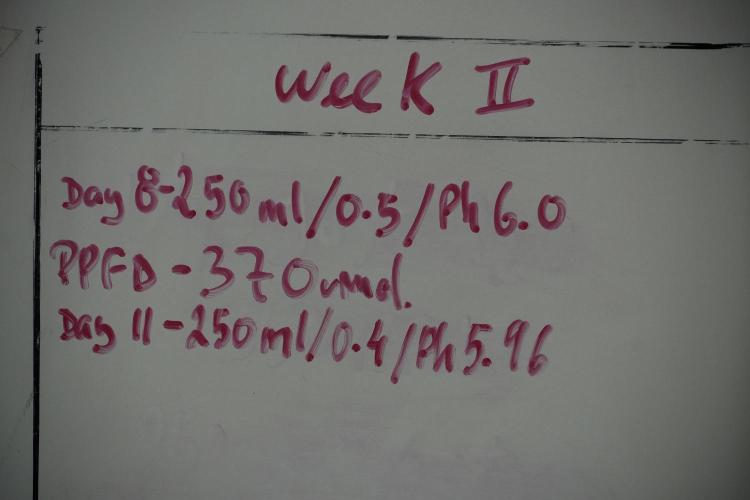 Week II
Day 8-250ml/0.5/Ph 6.0
PPFD - 370 umol.
Day 11-250ml/0.4/Ph 5.96